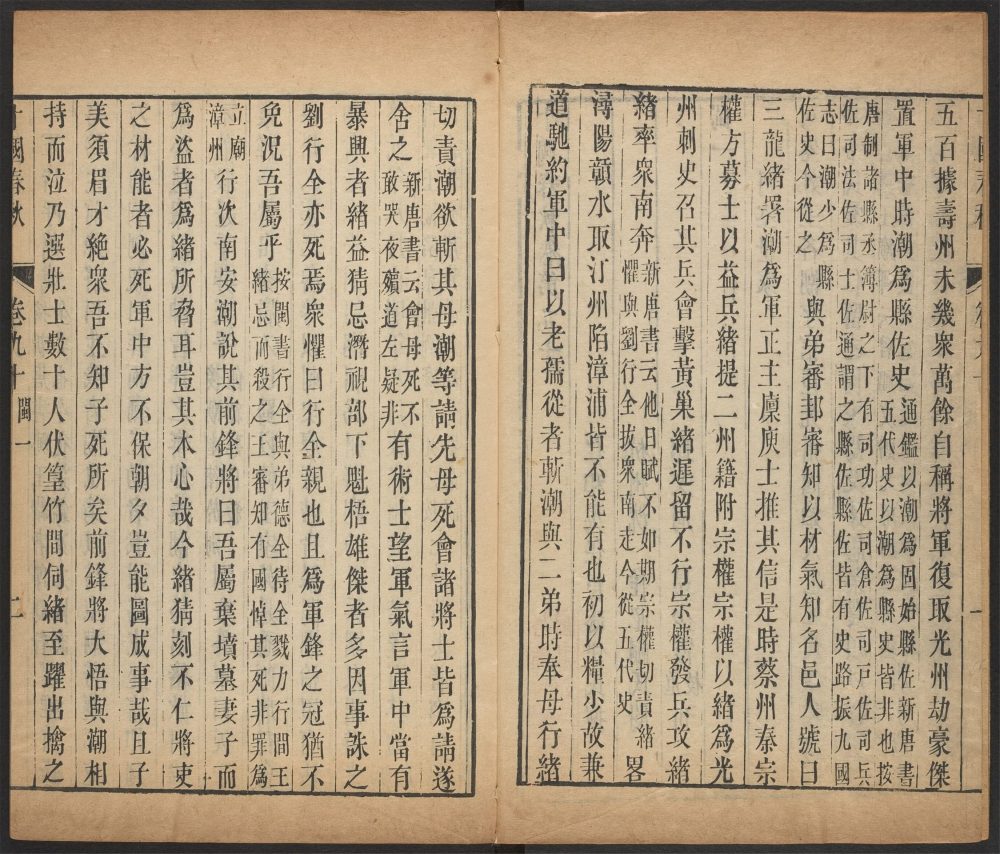 五百據壽州未幾衆萬餘自稱將軍復取光州劫豪傑
置軍中時潮爲縣佐史通鑑以潮爲固始縣佐新唐書
五代史以潮爲縣史皆非也按
唐制諸縣丞簿尉之下有司功佐司倉佐司戸佐司兵
佐司法佐司士佐通謂之縣佐縣佐皆有史路振九國
志曰潮少爲縣
佐史今從之
與弟審邽審知以材氣知名邑人號曰
三龍緒署潮爲軍正主廩庾士推其信是時蔡州秦宗
權方募士以益兵緒提二州籍附宗權宗權以緒爲光
州刺史召其兵會擊黃巢緒遲留不行宗權發兵攻緒
緒率衆南奔新唐書云他日賦不如期宗權切責緒
懼與劉行全拔衆南走今從五代史
畧
潯陽贛水取汀州陷漳浦皆不能有也初以糧少故兼
道馳約軍中曰以老孺從者斬潮與二弟時奉母行緒
切責潮欲斬其母潮等請先母死會諸將士皆爲請遂
舍之新唐書云會母死不
敢哭夜殯道左疑非
有術士望軍氣言軍中當有
暴興者緒益猜忌潛視部下魁梧雄傑者多因事誅之
劉行全亦死焉衆懼曰行全親也且爲軍鋒之冠猶不
免況吾屬乎按閩書行全與弟德全待全戮力行間王
緒忌而殺之王審知有國悼其死非罪爲
立廟
漳州
行次南安潮說其前鋒將曰吾屬棄墳墓妻子而
爲盜者爲緒所脅耳豈其本心哉今緒猜刻不仁將吏
之材能者必死軍中方不保朝夕豈能圖成事哉且子
美須眉才絶衆吾不知子死所矣前鋒將大悟與潮相
持而泣乃選壯士數十人伏篁竹間伺緒至躍出擒之
十國春秋 卷九十 閩一 二